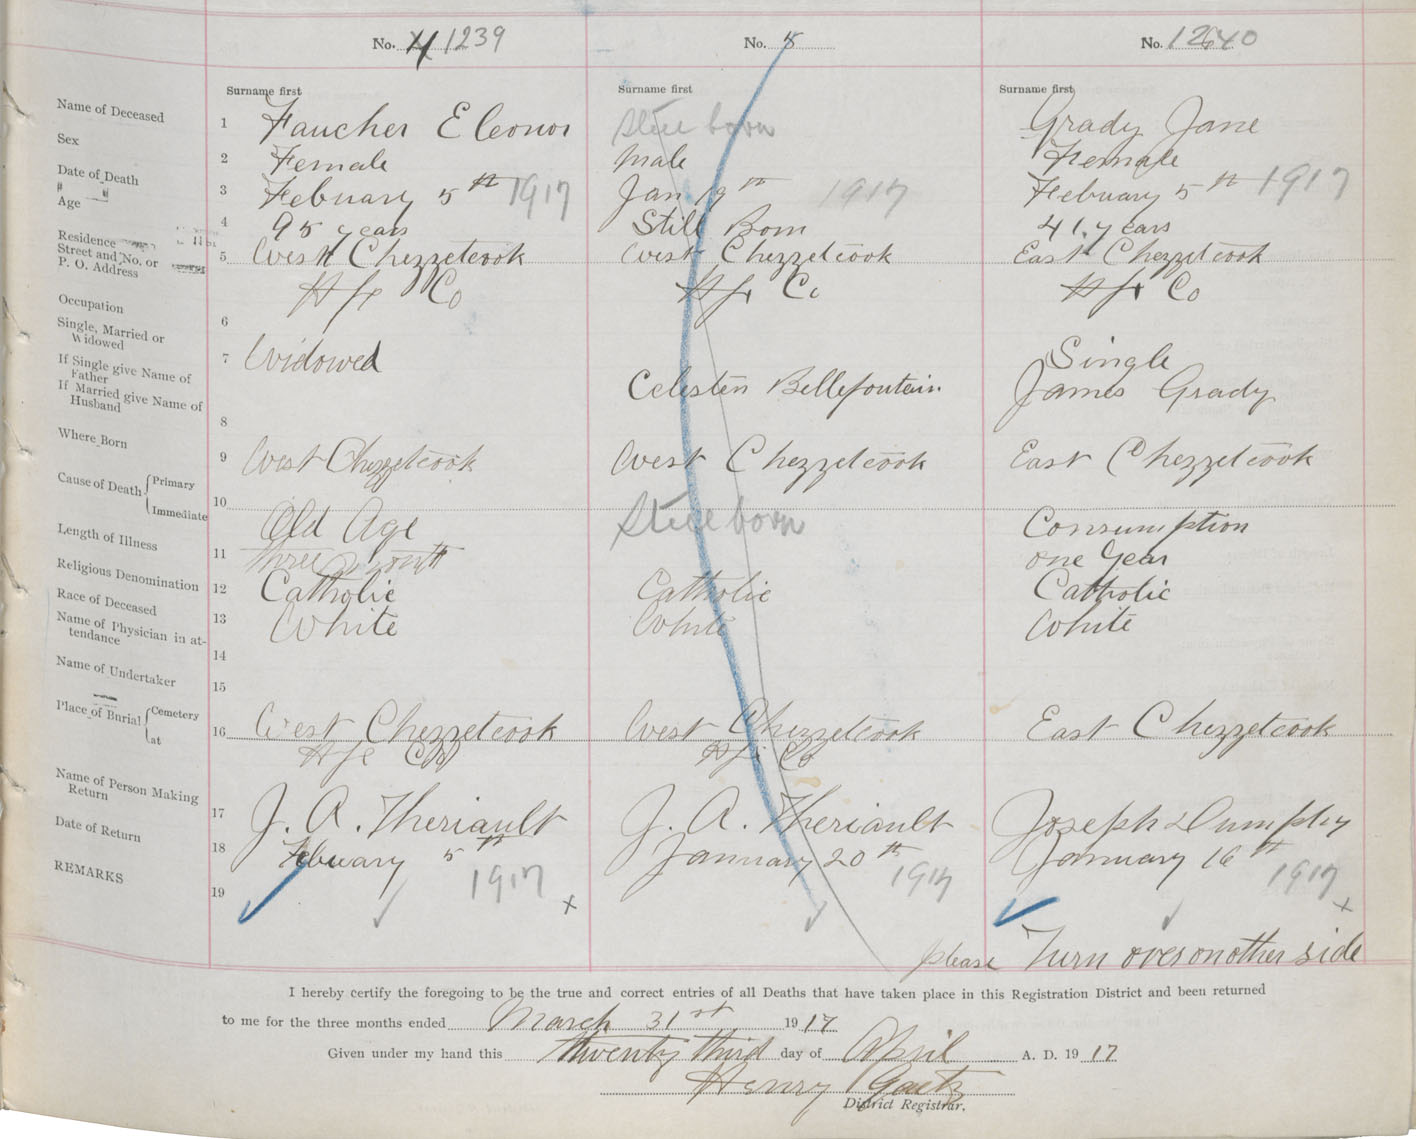 No. 4 1239
No. 5
No. 1240
Surname first
Surname first
Surname first
Name of Deceased 1 Faucher Eleonor
Still born
Grady Jane
Sex 2 Female
Male
Female
Date of Death 3 Febuary 5th 1917
Jan 19th 1917
Febuary 5th 1917
" " Age 4 95 years
Still Born
41 years
Residence
Street and No. or
P. O. Address
5 West Chezzetcook
Hfx Co
West Chezzetcook
Hfx Co
East Chezzetcook
Hfx Co
Occupation 6
Single, Married or
Widowed
7 Widowed
Single
If Single give Name of
Father
If Married give Name of
Husband
8
Celesten Bellefontain
James Grady
Where Born 9 West Chezzetcook
West Chezzetcook
East Chezzetcook
Cause of Death Primary
Immediate
10 Old Age
Still born
Consumption
Length of Illness 11 three month
one Year
Religious Denomination 12 Catholic
Catholic
Catholic
Race of Deceased 13 White
White
White
Name of Physician in at-
tendance
14
Name of Undertaker 15
Place of Burial Cemetery
at
16 West Chezzetcook
Hfx Co
West Chezzetcook
Hfx Co
East Chezzetcook
Name of Person Making
Return
17 J. A. Theriault
J. A. Theriault
Joseph
Date of Return 18 Febuary 5th 1917
January 20th 1917
January 16th 1917
REMARKS 19
x
x
please Turn over on other side
I hereby certify the foregoing to be the true and correct entries of all Deaths that have taken place in this Registration District and been returned
to me for the three months ended March 31st 1917
Given under my hand this twenty third day of April A. D. 1917
Henry Gaetz
District Registrar.